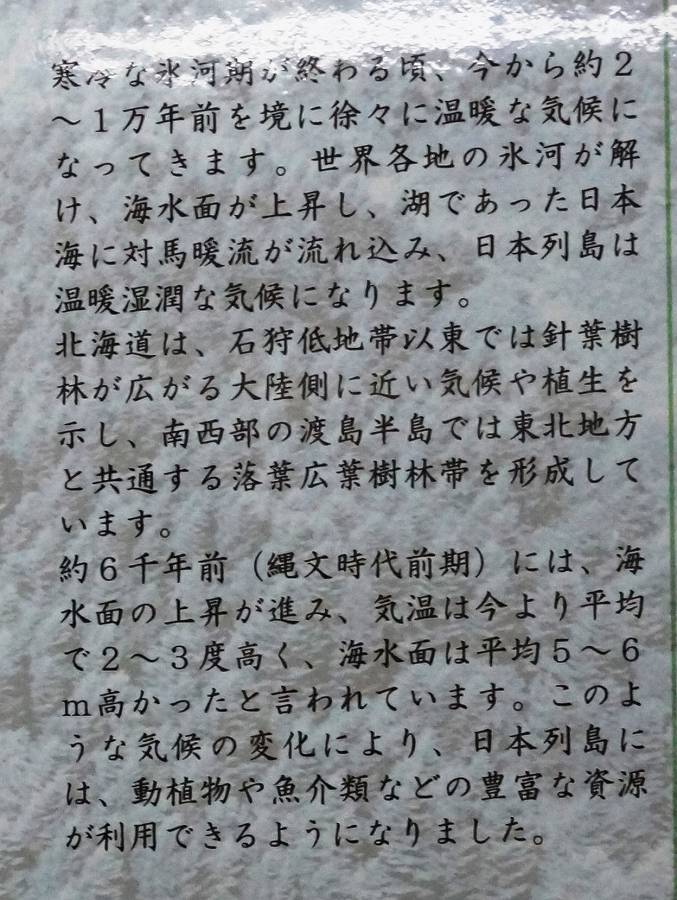 寒冷な氷河期が終わる頃、今から約２
～１万年前を境に徐々に温暖な気候に
なってきます。世界各地の氷河が解
け、海水面が上昇し、湖であった日本
海に対馬暖流が流れ込み、日本列島は
温暖湿潤な気候になります。
北海道は、石狩低地帯以東では針葉樹
林が広がる大陸側に近い気候や植生を
示し、南西部の渡島半島では東北地方
と共通する落葉広葉樹林帯を形成して
います。
約６千年前（縄文時代前期）には、海
水面の上昇が進み、気温は今より平均
で２～３度高く、海水面は平均５～６
ｍ高かったと言われています。このよ
うな気候の変化により、日本列島に
は、動植物や魚介類などの豊富な資源
が利用できるようになりました。